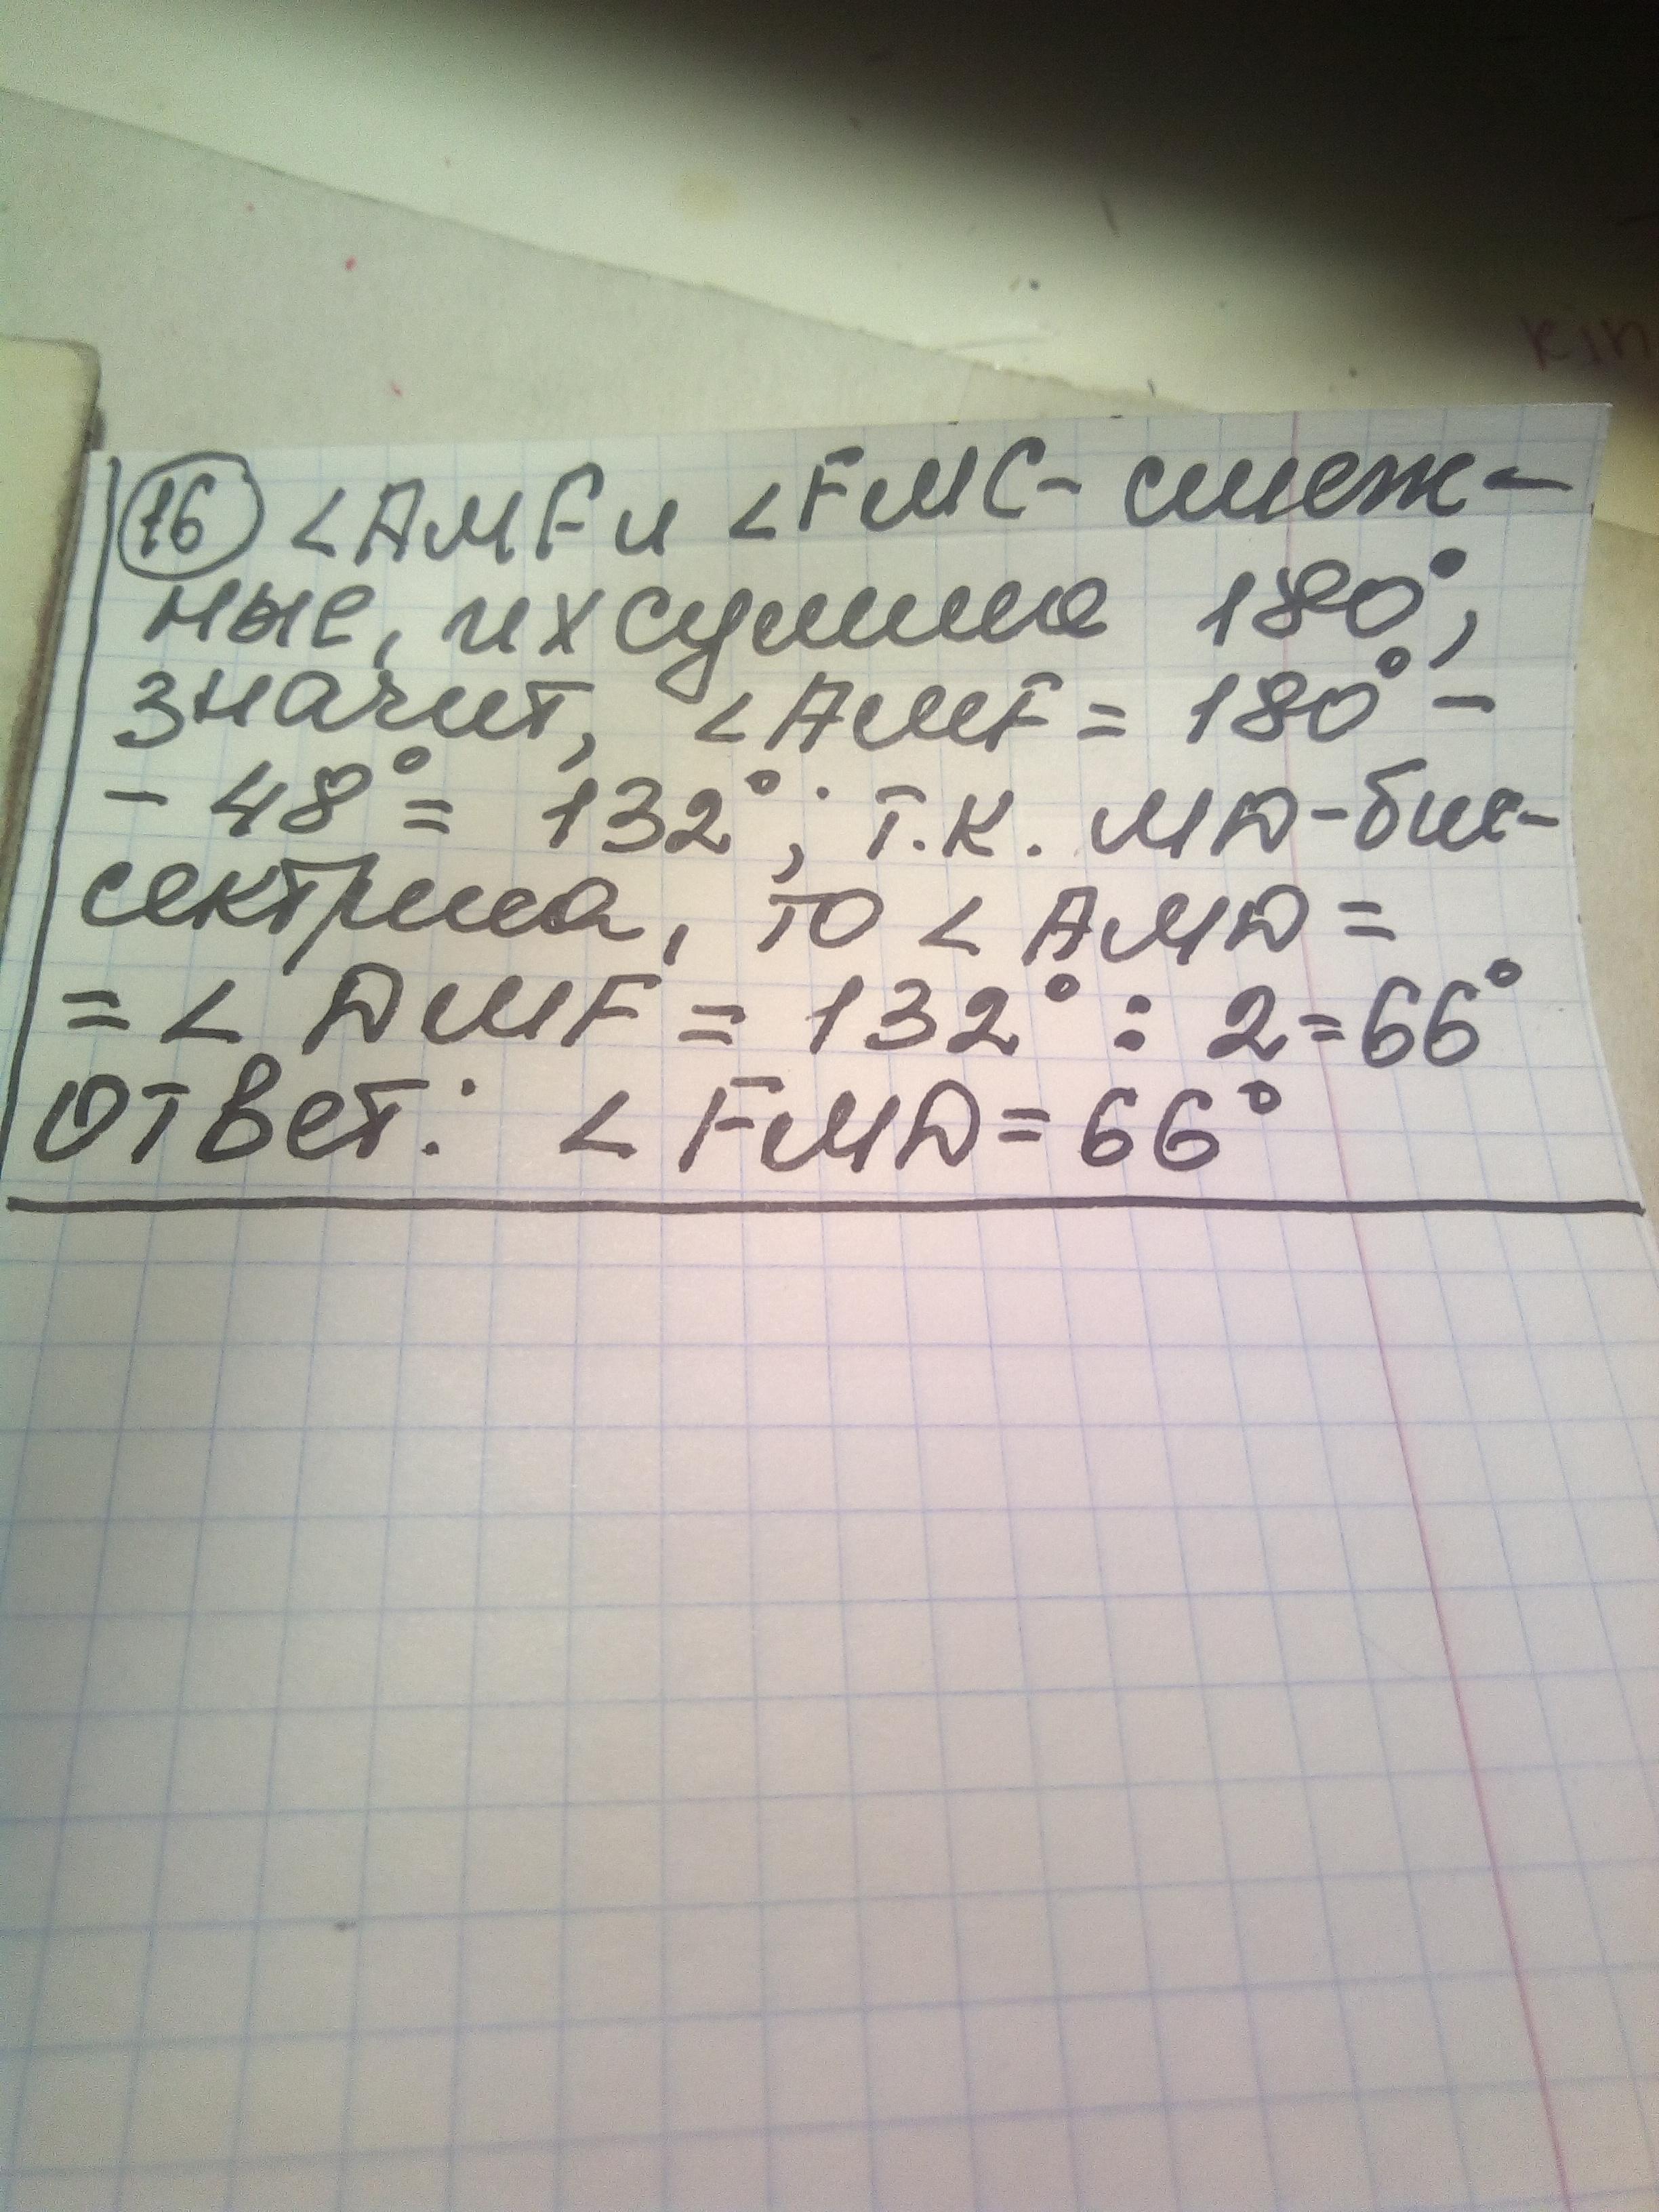 16 <AMF и <FMC- смеж-
ные, их сумма 180°,
значит, <AMF = 180° -
- 48° = 132°; т.к. MD-бис-
сектриса, то < AMD =
= < DMF = 132° : 2=66°
Ответ: < FMD = 66°
KIN